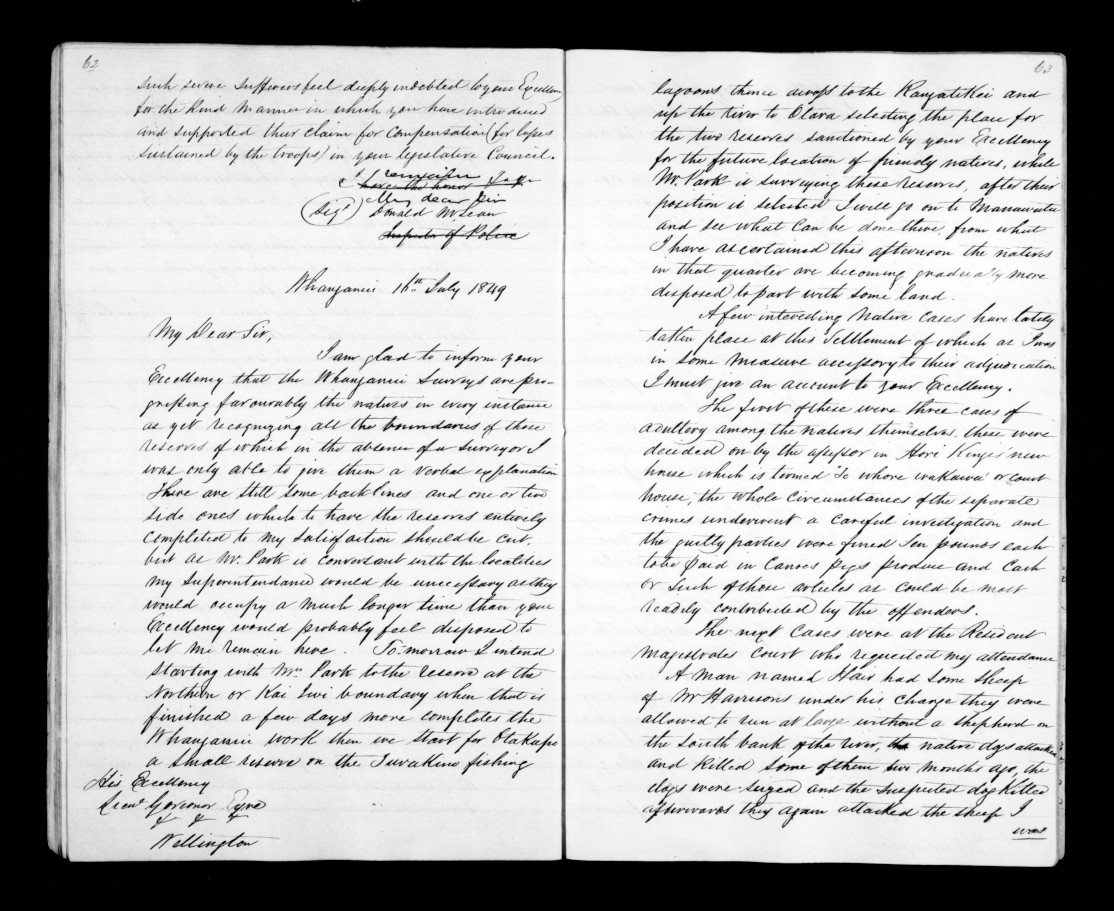 62
such severe sufferers feel deeply indebted to your Excellency
for the kind manner in which you have introduced
and supported their claim for compensation (for losses
sustained by the troops) in your legislative Council.
I remain
have the honor
My dear Sir
(Sigd) Donald McLean
Inspector of Police
Whanganui 16th July 1849
My Dear Sir,
I am glad to inform your
Excellency that the Whanganui Surveys are pro-
gressing favourably the natives in every instance
as yet recognizing all the boundaries of those
reserves of which in the absence of a surveyor I
was only able to give them a verbal explanation
There are still some back lines and one or two
side ones which to have the reserves entirely
completed to my satisfaction should be cut,
but as Mr. Park is conversant with the localities
my superintendance would be unnecessary as they
would occupy a much longer time than your
Excellency would probably feel disposed to
let me remain here. To-morrow I intend
starting with Mr. Park to the reserve at the
Northern or Kai Iwi boundary when that is
finished a few days more completes the
Whanganui work then we start for Otakapo
a small reserve on the Turakina fishing
His Excellency
Lieut Governor Eyre
& & &
Wellington
63
lagoons thence across to the Rangatikei and
up the river to Otara selecting the place for
the two reserves sanctioned by your Excellency
for the future location of friendly natives, while
Mr. Park is surveying these reserves, after their
position is selected I will go on to Manawatu
and see what can be done there, from what
I have ascertained this afternoon the natives
in that quarter are becoming gradually more
disposed to part with some land.
A few interesting native cases have lately
taken place at this Settlement of which as I was
in some measure accessory to their adjudication
I must give an account to your Excellency.
The first of these were three cases of
adultery among the natives themselves, these were
decided on by the assessor in Hori Kingi's new
house which is termed Te whare wakawa or court
house, the whole circumstances of the separate
crimes underwent a careful investigation and
the guilty parties were fined Ten pounds each
to be paid in Canoes Pigs produce and Cash
or such of those articles as could be most
readily contributed by the offenders.
The next cases were at the Resident
Magistrates Court who requested my attendance
A man named Hair had some sheep
of Mr Harrisons under his charge they were
allowed to run at large without a shepherd on
the South bank of the river, the native dogs attacked
and killed some of them two months ago, the
dogs were seized and the suspected dog killed
afterwards they again attacked the sheep I
was